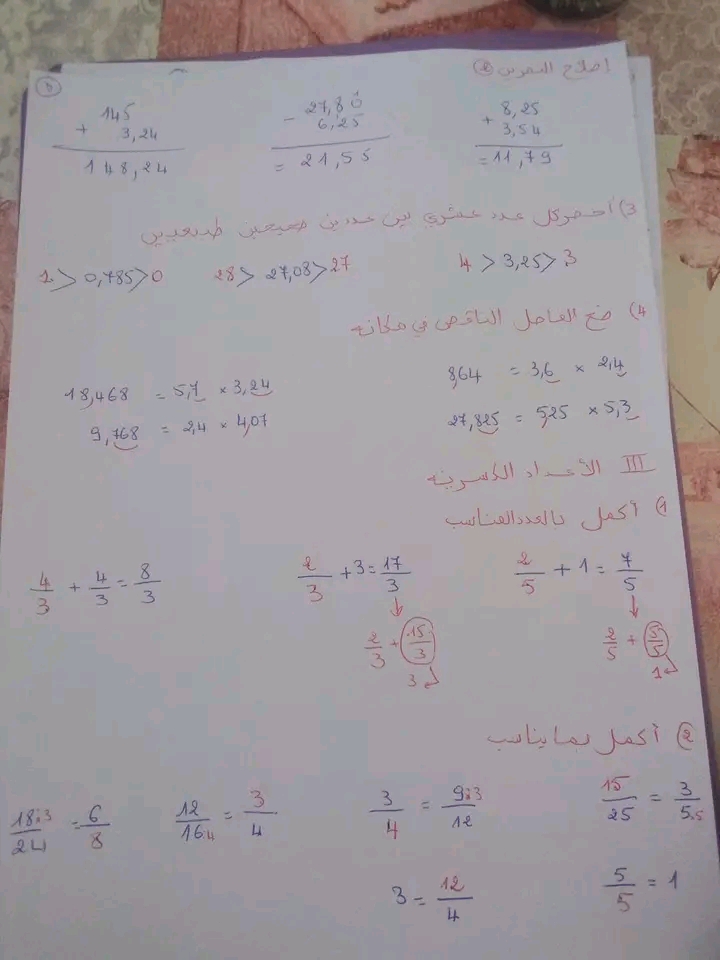 إصلاح التمرين 2
8,25 + 3,54 = 11,79
27,80 - 6,25 = 21,55
145 + 3,24 148,24
3) أحصر كل عدد عشري بين عددين صحيحين طبيعيين
4 > 3,25 > 3
28 > 27,08 > 27
1 > 0,785 > 0
4) ضع الفاصل الناقص في مكانه
8,64 = 3,6 × 2,4
18,468 = 5,7 × 3,24
27,825 = 5,25 × 5,3
9,768 = 2,4 × 4,07
III الأعداد الكسرية
1) أكمل بالعدد المناسب
2/5 + 1 = 7/5
2/3 + 3 = 17/3
4/3 + 4/3 = 8/3
2/5 + 5/5
1
2/3 + 15/3
3
2 أكمل بما يناسب
15/25 = 3/5.5
3/4 = 9:3/12
12/16:4 = 3/4
18:3/24 = 6/8
5/5 = 1
3 = 12/4